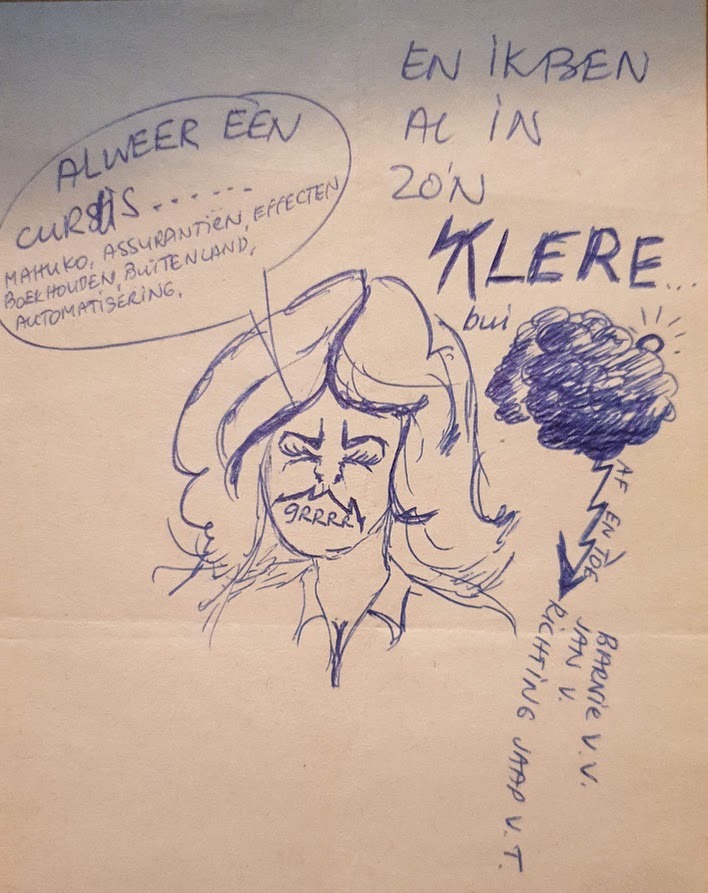 EN IK BEN
AL IN
ZO'N
KLERE...
bui
ALWEER EEN
CURSUS.......
MAHUKO, ASSURANTIËN, EFFECTEN
BOEKHOUDEN, BUITENLAND,
AUTOMATISERING.
GRRRR
AF EN TOE
BARNIE V.V.
JAN V.
RICHTING JAAP V.T.